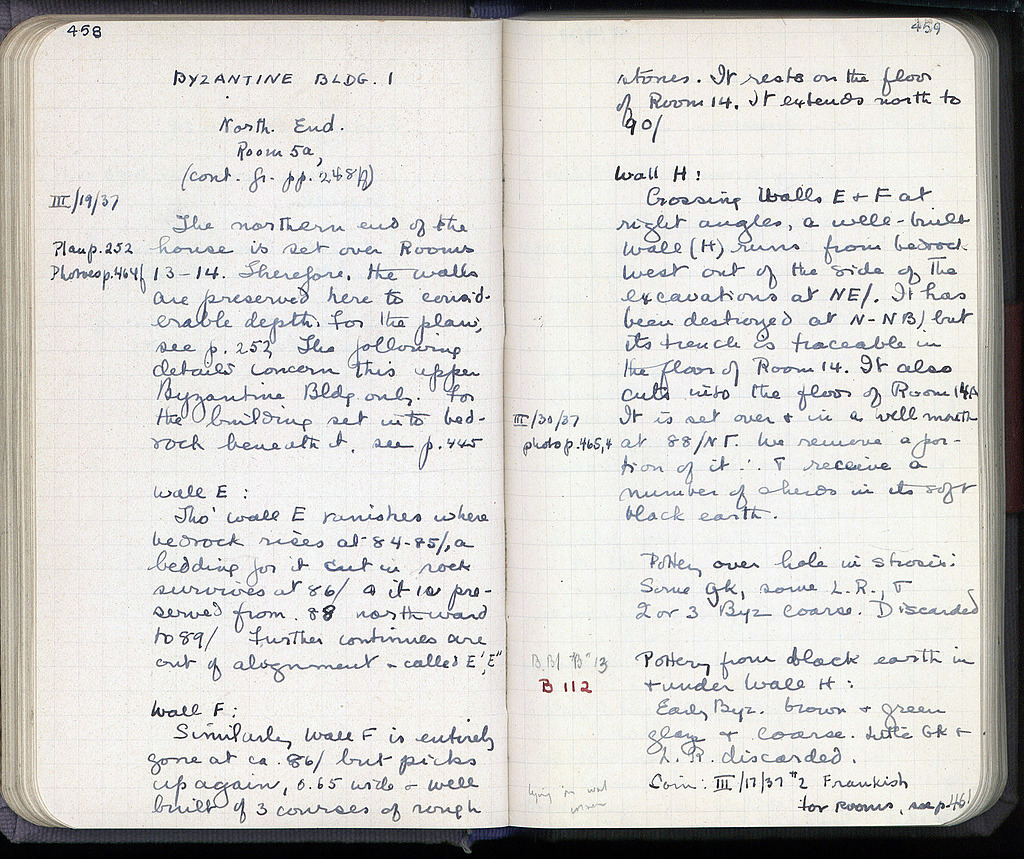 458
BYZANTINE BLDG. 1
North. End.
Room 5a,
(cont. fr. pp. 248ff)
III/19/37
The northern end of the
Plan p. 252
house is set over Rooms
Photos p. 464f
13-14. Therefore, the walls
are preserved here to consid-
erable depth. For the plan,
see p. 252. The following
details concern this upper
Byzantine Bldg only. For
the building set into bed-
rock beneath it, see p. 445
Wall E :
Tho' wall E vanishes where
bedrock rises at 84-85/, a
bedding for it cut in rock
survives at 86/ & it is pre-
served from 88 northward
to 89/ Further continues are
out of alognment & called E', E"
Wall F:
Similarly wall F is entirely
gone at ca. 86/ but picks
up again, 0.65 wide & well
built of 3 courses of rough
459
stones. It rests on the floor
of Room 14. It extends north to
90/
Wall H:
Crossing Walls E & F at
right angles, a well-built
wall (H) runs from bedrock
west out of the side of the
excavations at NE/. It has
been destroyed at N-NB/ but
its trench is traceable in
the floor of Room 14. It also
cuts into the floor of Room 14A
III/30/37
It is set over & in a well mouth
photo p. 465,4
at 88/NΓ. We remove a por-
tion of it & receive a
number of sherds in its soft
black earth.
Pottery over hole in strosis:
Some Gk, some L.R., &
2 or 3 Byz coarse. Discarded
B.B/ "B" 13
Pottery from black earth in
B 112
& under Wall H :
Early Byz. brown & green
glaze & coarse. Little Gk &
L. R. discarded.
Coin: III/17/37 #2 Frankish
lying in
for Rooms, see p. 461